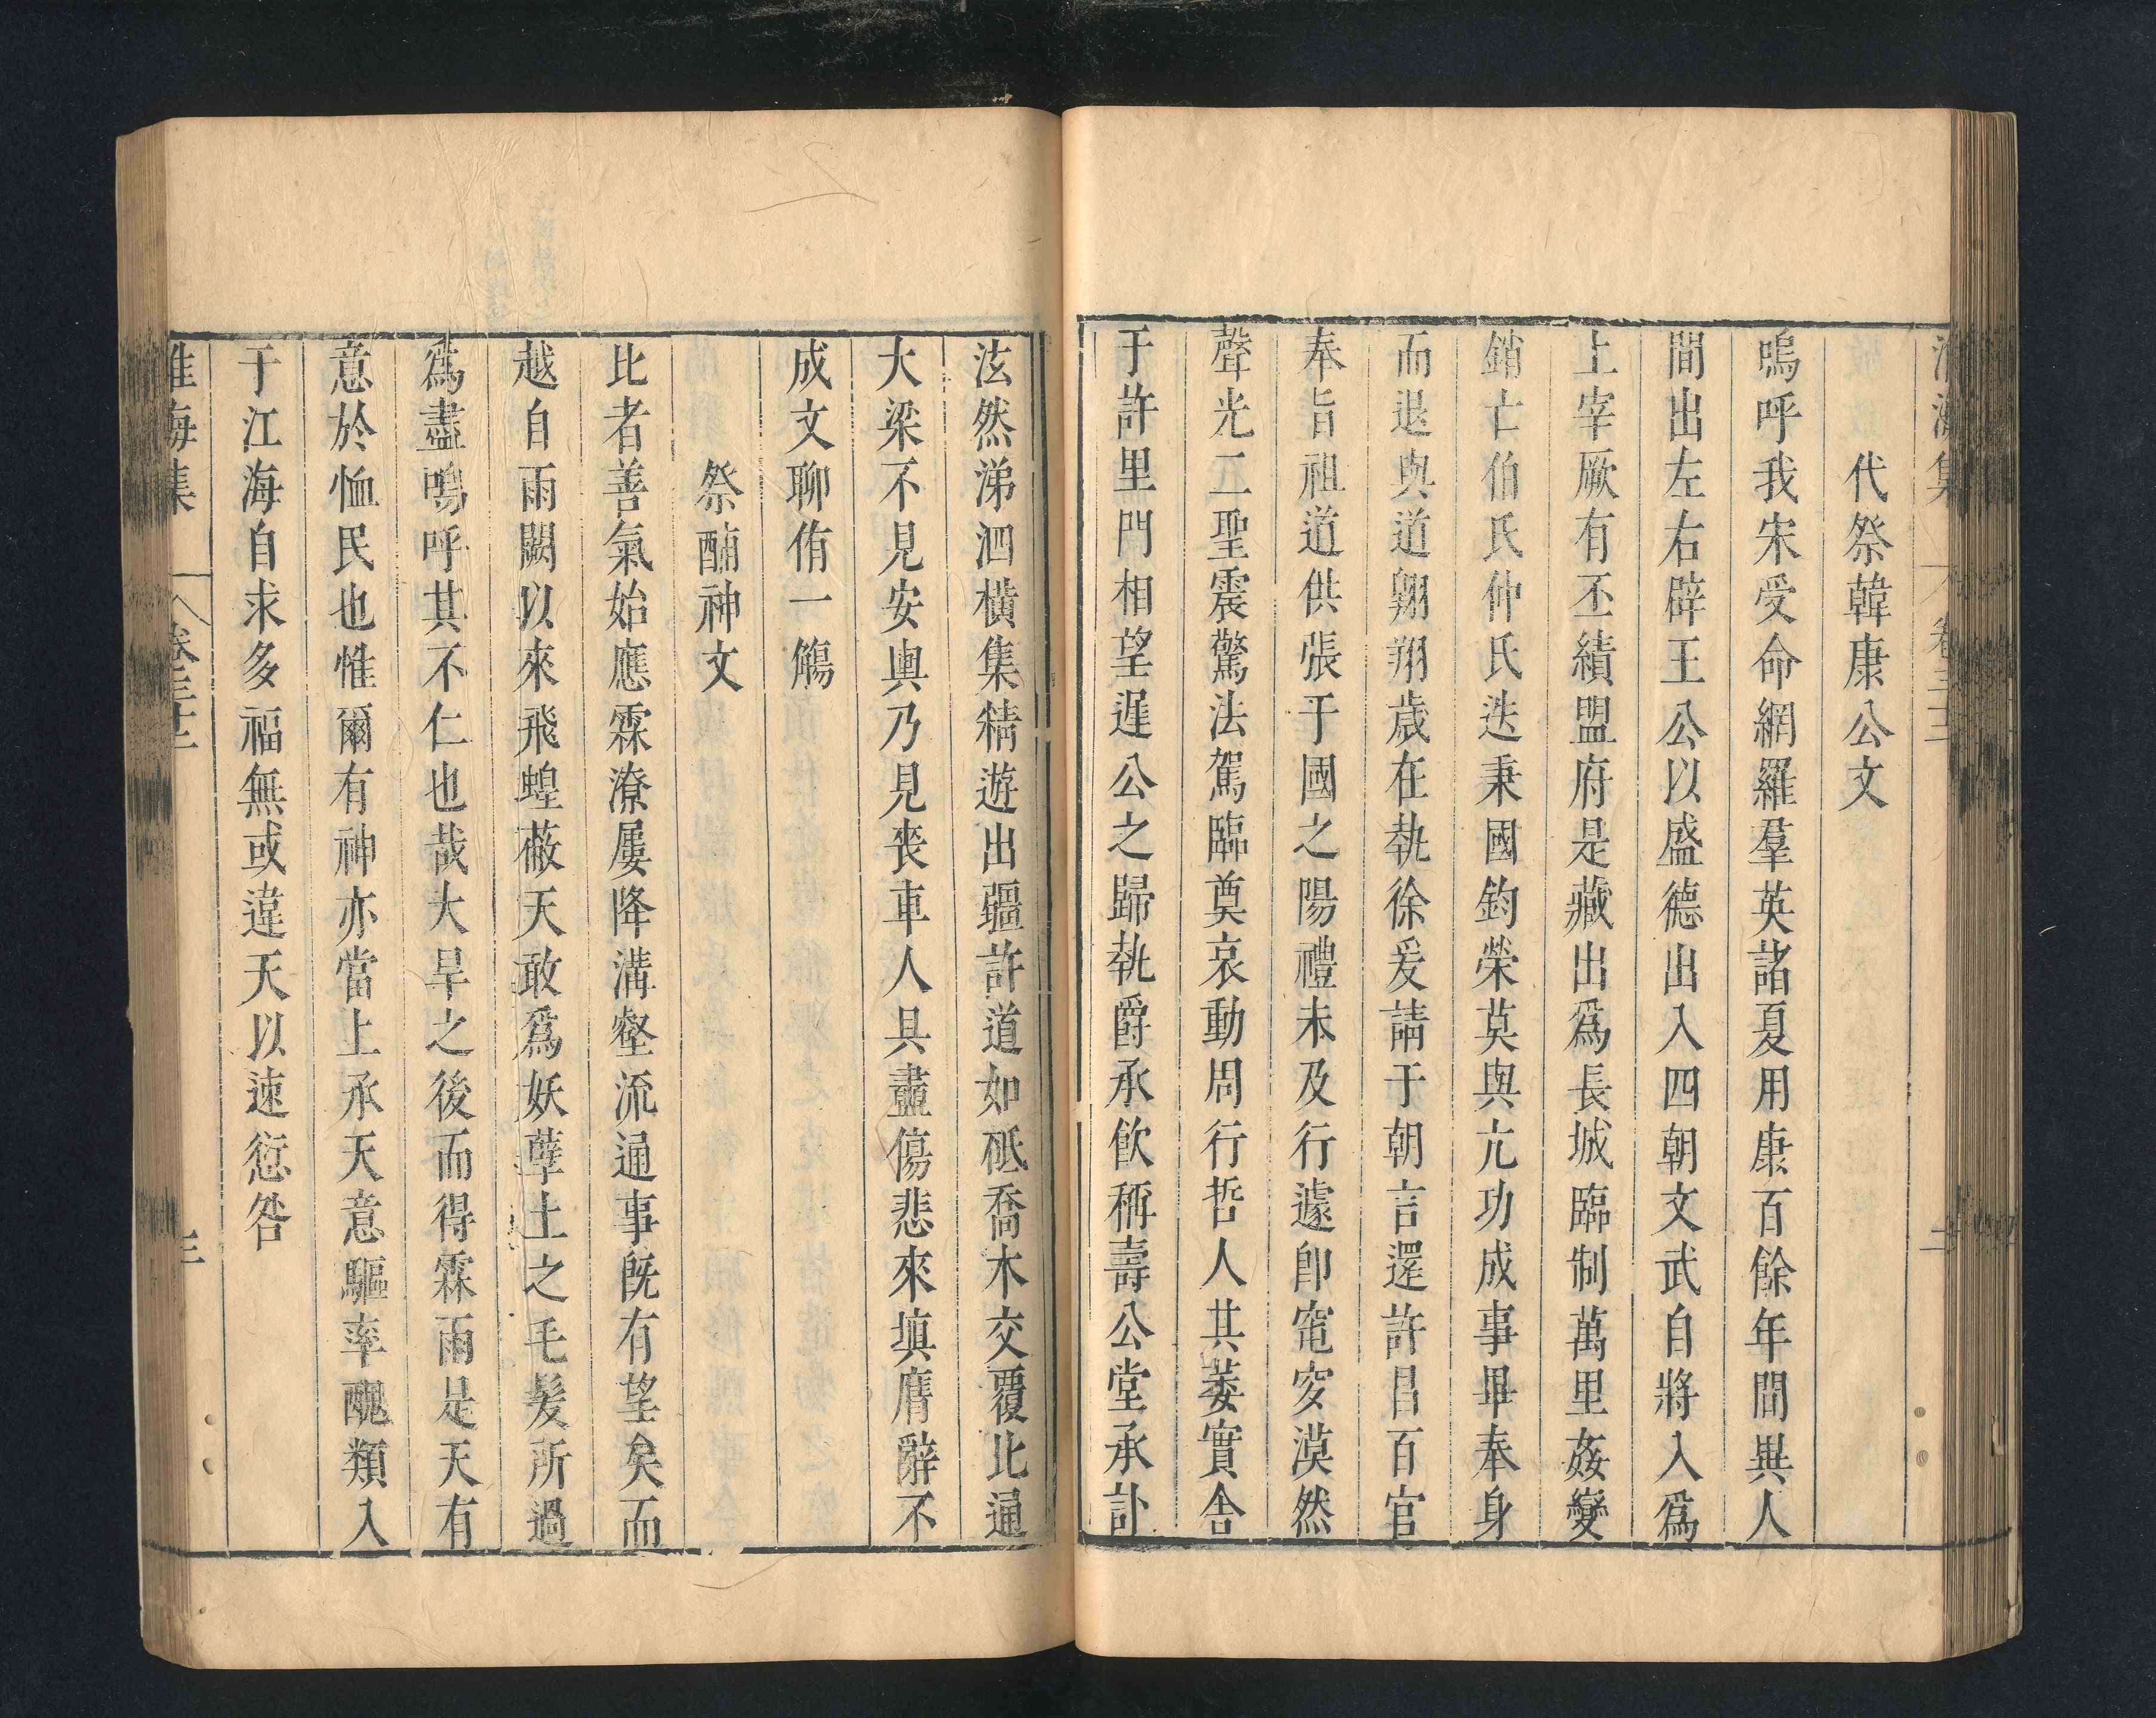 淮海集 卷三十一 二
代祭韓康公文
嗚呼我宋受命網羅羣英諸夏用康百餘年間異人
間出左右辟王公以盛德出入四朝文武自將入爲
上宰厥有丕績盟府是藏出爲長城臨制萬里姦變
銷亡伯氏仲氏迭秉國鈞榮莫與亢功成事畢奉身
而退與道翱翔歲在執徐爰請于朝言還許昌百官
奉旨祖道供張于國之陽禮未及行遽卽窀穸漠然
聲光二聖震驚法駕臨奠哀動周行哲人其萎實舍
于許里門相望遲公之歸執爵承飲稱壽公堂承訃
泫然涕泗橫集精遊出疆許道如砥喬木交覆北通
大梁不見安輿乃見喪車人具盡傷悲來塡膺辭不
成文聊侑一觴
祭酺神文
比者善氣始應霖潦屢降溝壑流通事旣有望矣而
越自雨闕以來飛蝗蔽天敢爲妖孽土之毛髮所過
爲盡嗚呼其不仁也哉大旱之後而得霖雨是天有
意於恤民也惟爾有神亦當上承天意驅率醜類入
于江海自求多福無或違天以速愆咎
淮海集 卷三十一 三